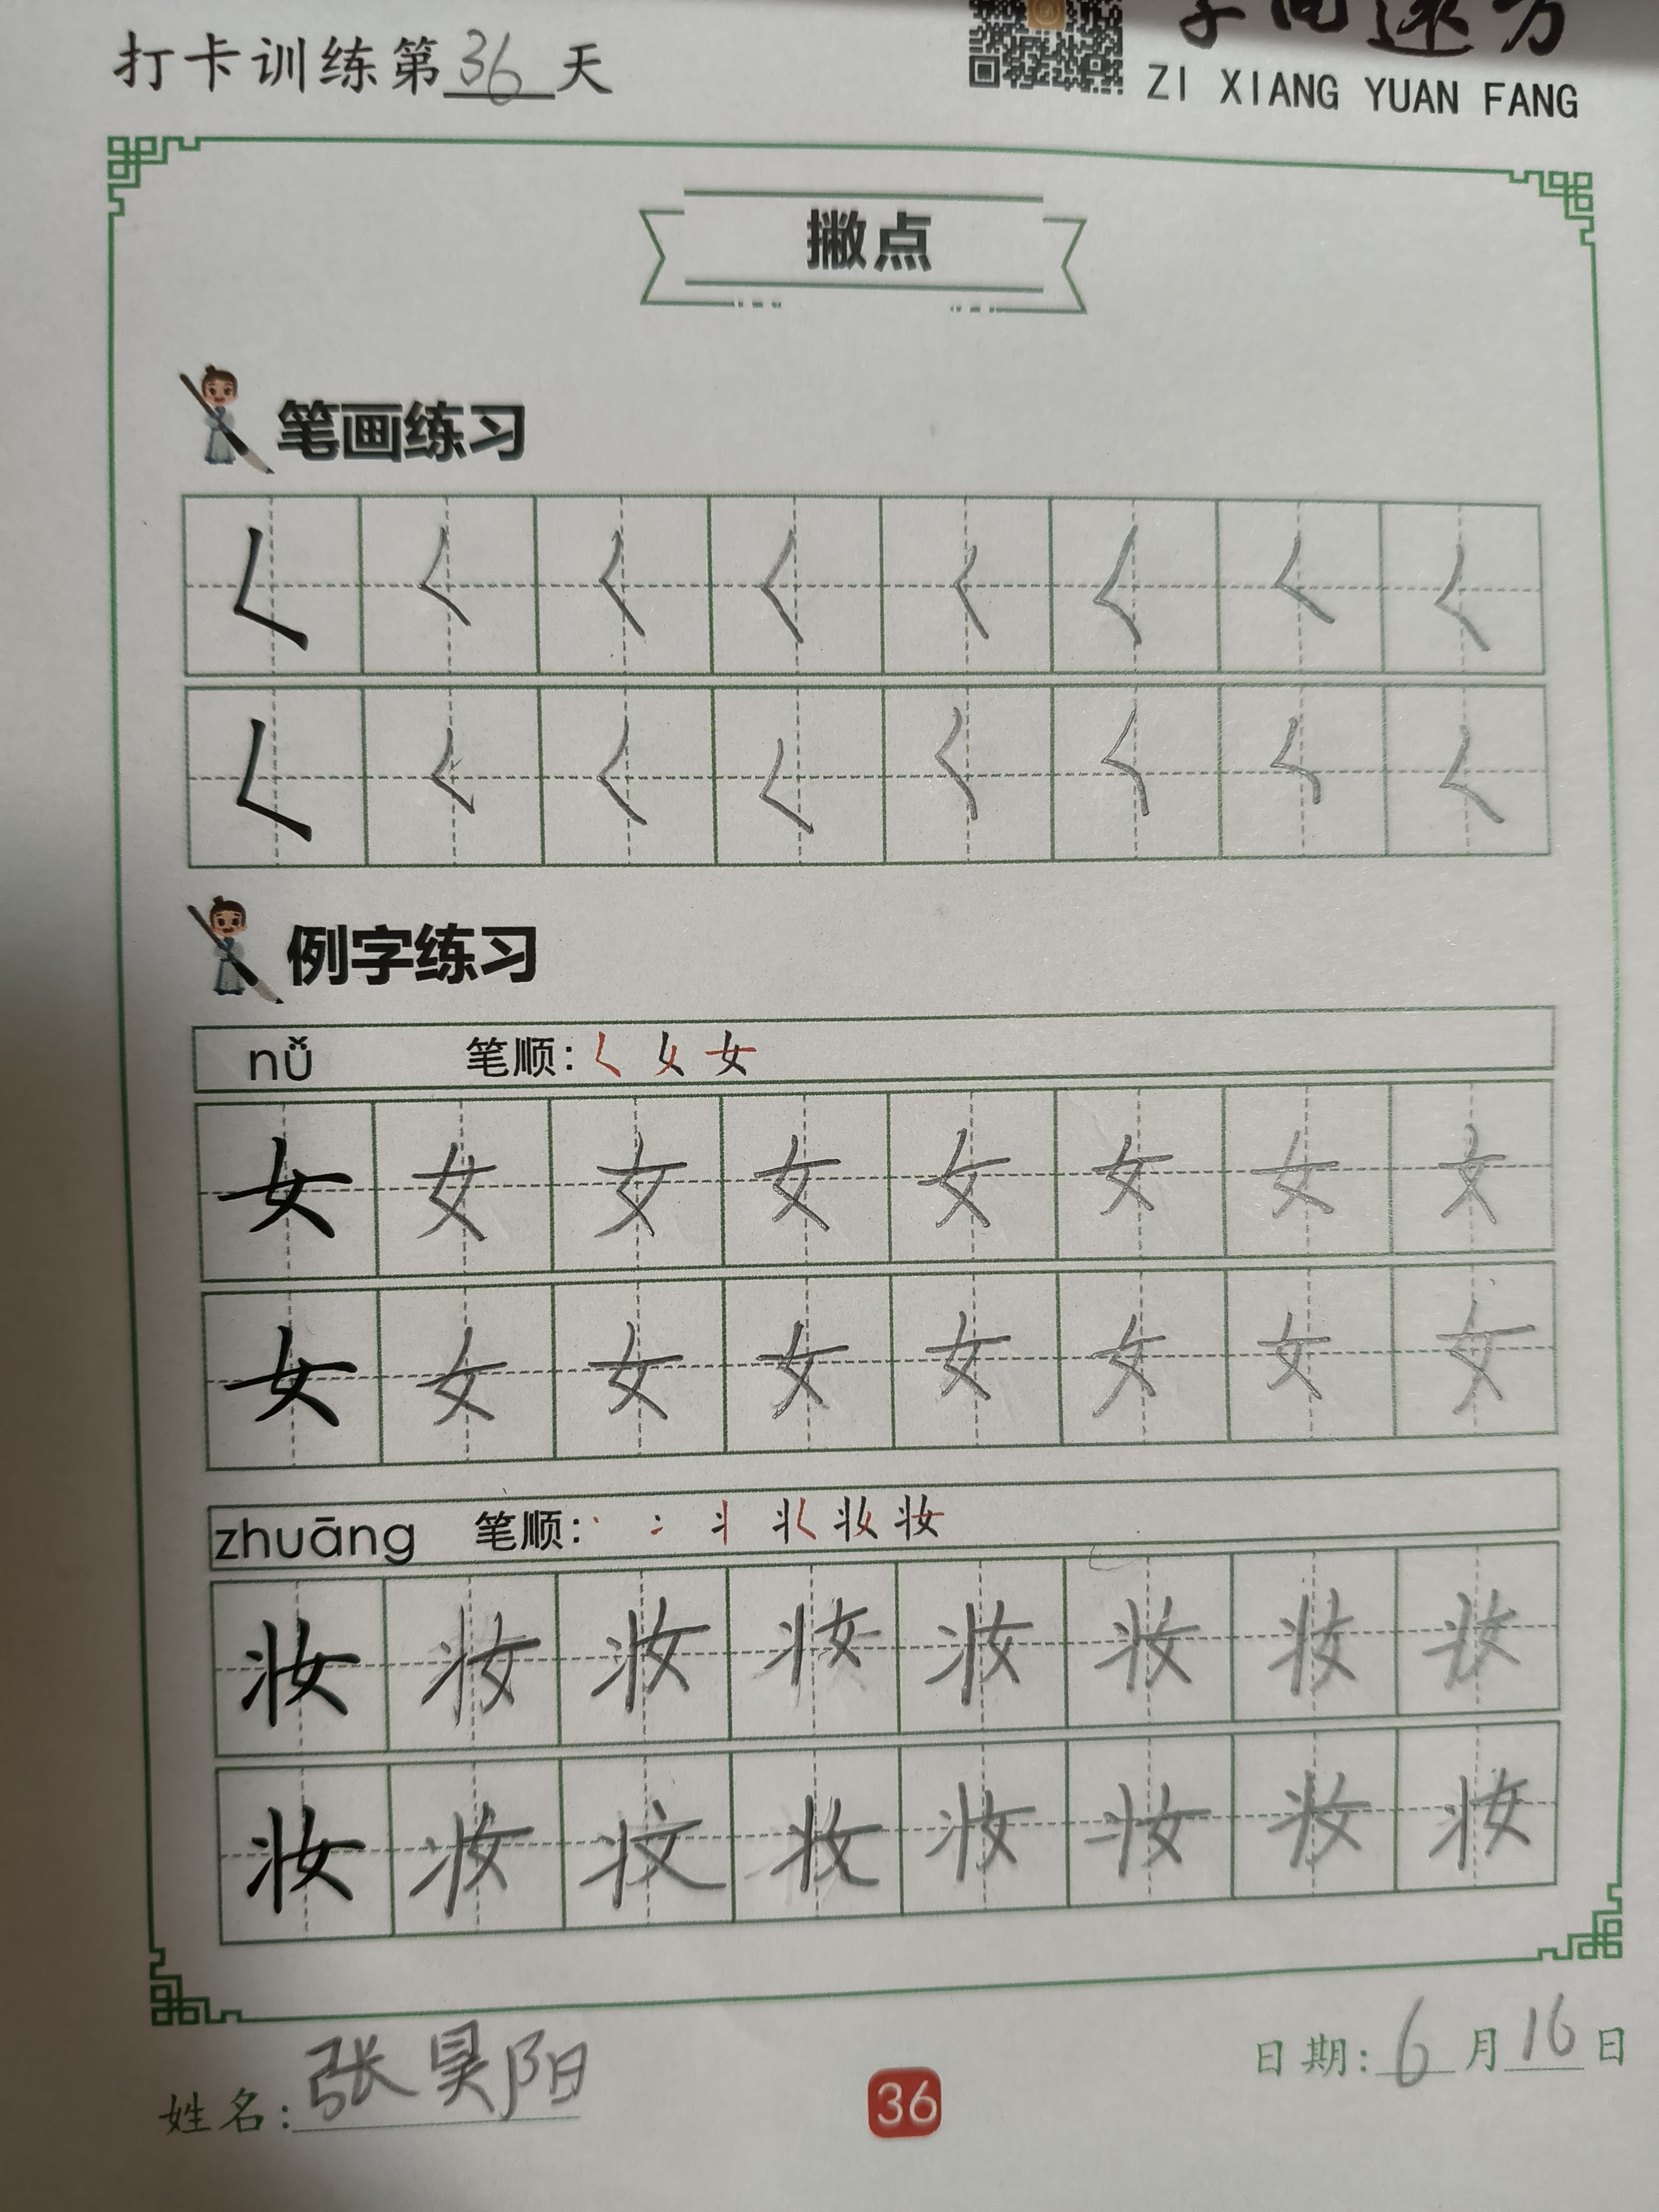 打卡训练第36天
ZI XIANG YUAN FANG
撇点
笔画练习
𡿨 𡿨 𡿨 𡿨 𡿨 𡿨 𡿨 𡿨
𡿨 𡿨 𡿨 𡿨 𡿨 𡿨 𡿨 𡿨
例字练习
nǚ 笔顺:
女 女 女 女 女 女 女 女
女 女 女 女 女 女 女 女
zhuāng 笔顺:
妆 妆 妆 妆 妆 妆 妆 妆
妆 妆 妆 妆 妆 妆 妆 妆
姓名:张昊阳
36
日期:6月16日